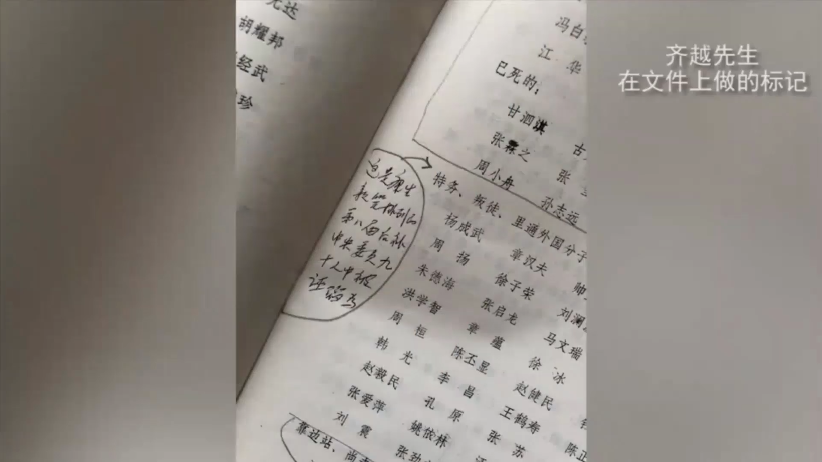 齐越先生
在文件上做的标记
达
胡耀邦
经武
珍
冯白
江 华
已死的：
甘泗淇 古
张霖之 张
周小舟 孙志远
特务、叛徒、里通外国分子
杨成武 章汉夫 帅
周 扬 徐子荣 刘澜
朱德海 张启龙 马文瑞
洪学智 章 蕴 徐 冰
周 桓 陈丕显 赵健民
韩 光 李 昌 王鹤寿
赵毅民 孔 原 张 苏 陈正
张爱萍 姚依林
刘 震 张劲
靠边站、
这是康生
第八届
中央委员九
十人中被